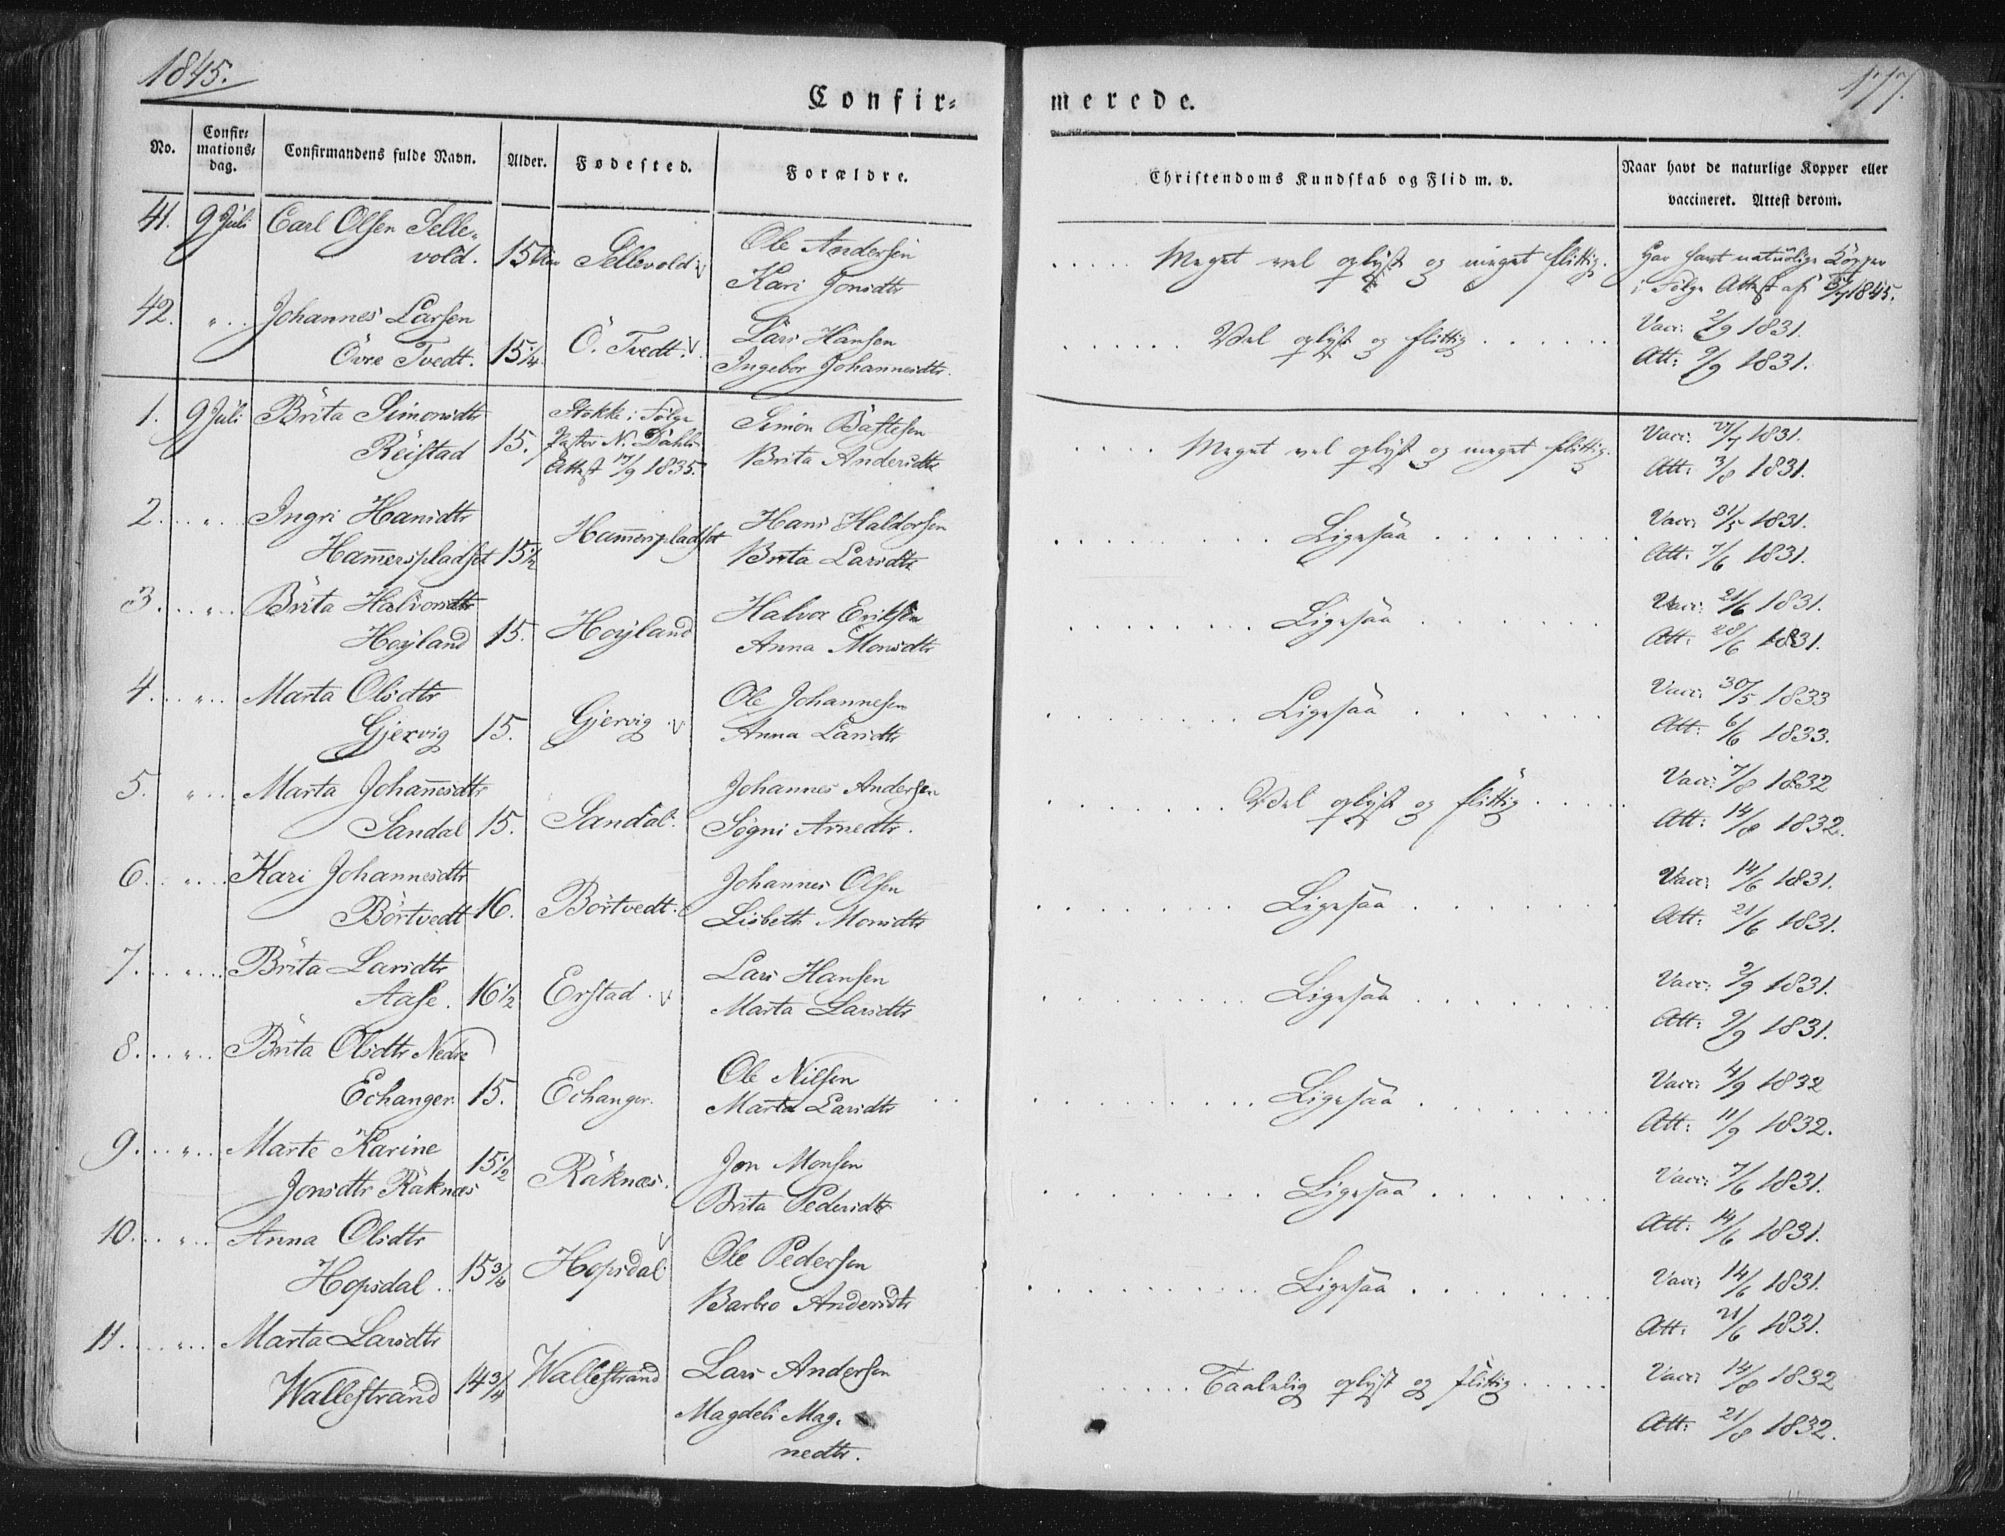 1845.
177.
Confir-
merede.
No.
Confir-
mations-
dag.
Confirmandens fulde Navn.
Alder.
Fødested.
Forældre.
Christendoms Kundskab og Flid m. v.
Naar havt de naturlige Kopper eller
vaccineret. Attest derom.
41. 9 Juli Carl Olsen Selle-
vold. 15 Aar Sellevold Ole Andersen
Kari Jonsdtr
..... Meget vel oplyst og meget flittig. Har havt naturlige Kopper
i Følge Attest af 1845.
42. " .. Johannes Larsen
Övre Tvedt. 15 1/4. Ö. Tvedt. Lars Hansen
Ingebor Johannesdtr.
...... Vel oplyst og flittig ...... Vacc: 2/9 1831.
Att: 9/9 1831.
1. 9 Juli Brita Simonsdtr
Reistad 15. Stokke i Følge
Pastor N. Dahls
Attest 17/9 1835. Simon Bastesen
Brita Andersdtr
.... Meget vel oplyst og meget flittig. Vacc: 27/7 1831.
Att: 3/8 1831.
2. ... " ... Ingri Hansdtr
Ham̅erspladset 15 1/2 Ham̅erspladset Hans Haldorsen
Brita Larsdtr
Ligesaa Vacc: 31/5 1831.
Att: 7/6 1831.
3. ... " .. Brita Halvorsdtr
Hoyland 15. Hoyland Halvor Eriksen
Anna Monsdtr
Ligesaa Vacc: 21/6 1831.
Att: 28/6 1831.
4. ... " .. Marta Olsdtr
Gjervig 15. Gjervig Ole Johannesen
Anna Larsdtr
Ligesaa Vacc: 30/5 1833
Att: 6/6 1833.
5. " ... Marta Johan̅esdtr
Sandal 15. Sandal. Johannes Andersen
Søgni Arnedtr.
Vel oplyst og flittig Vacc: 7/8 1832
Att: 14/8 1832.
6. .. " .... Kari Johannesdtr
Börtvedt 16. Börtvedt. Johannes Olsen
Lisbeth Monsdtr
Ligesaa Vacc: 14/6 1831.
Att: 21/6 1831.
7. ... " ... Brita Larsdtr
Aase. 16 1/2 Erstad. Lars Hansen
Marta Larsdtr
Ligesaa Vacc: 2/9 1831.
Att: 9/9 1831.
8. ... " .. Brita Olsdtr Nedre
Echanger 15. Echanger. Ole Nilsen
Marta Larsdtr
Ligesaa Vacc: 4/9 1832
Att: 11/9 1832.
9. ... " ... Marte Karine
Jonsdtr Räknæs 15 1/2 Räknæs. Jon Monsen
Brita Pedersdtr
Ligesaa Vacc: 7/6 1831.
Att: 14/6 1831.
10. ... " .. Anna Olsdtr
Hopsdal .. 15 3/4 Hopsdal Ole Pedersen
Barbro Andersdtr
Ligesaa Vacc: 14/6 1831.
Att: 21/6 1831.
11. .... " ... Marta Larsdtr
Wallestrand 14 3/4 Wallestrand Lars Andersen
Magdeli Mag-
nedtr.
...... Taalelig oplyst og flittig ...... Vacc: 14/8 1832
Att: 21/8 1832.